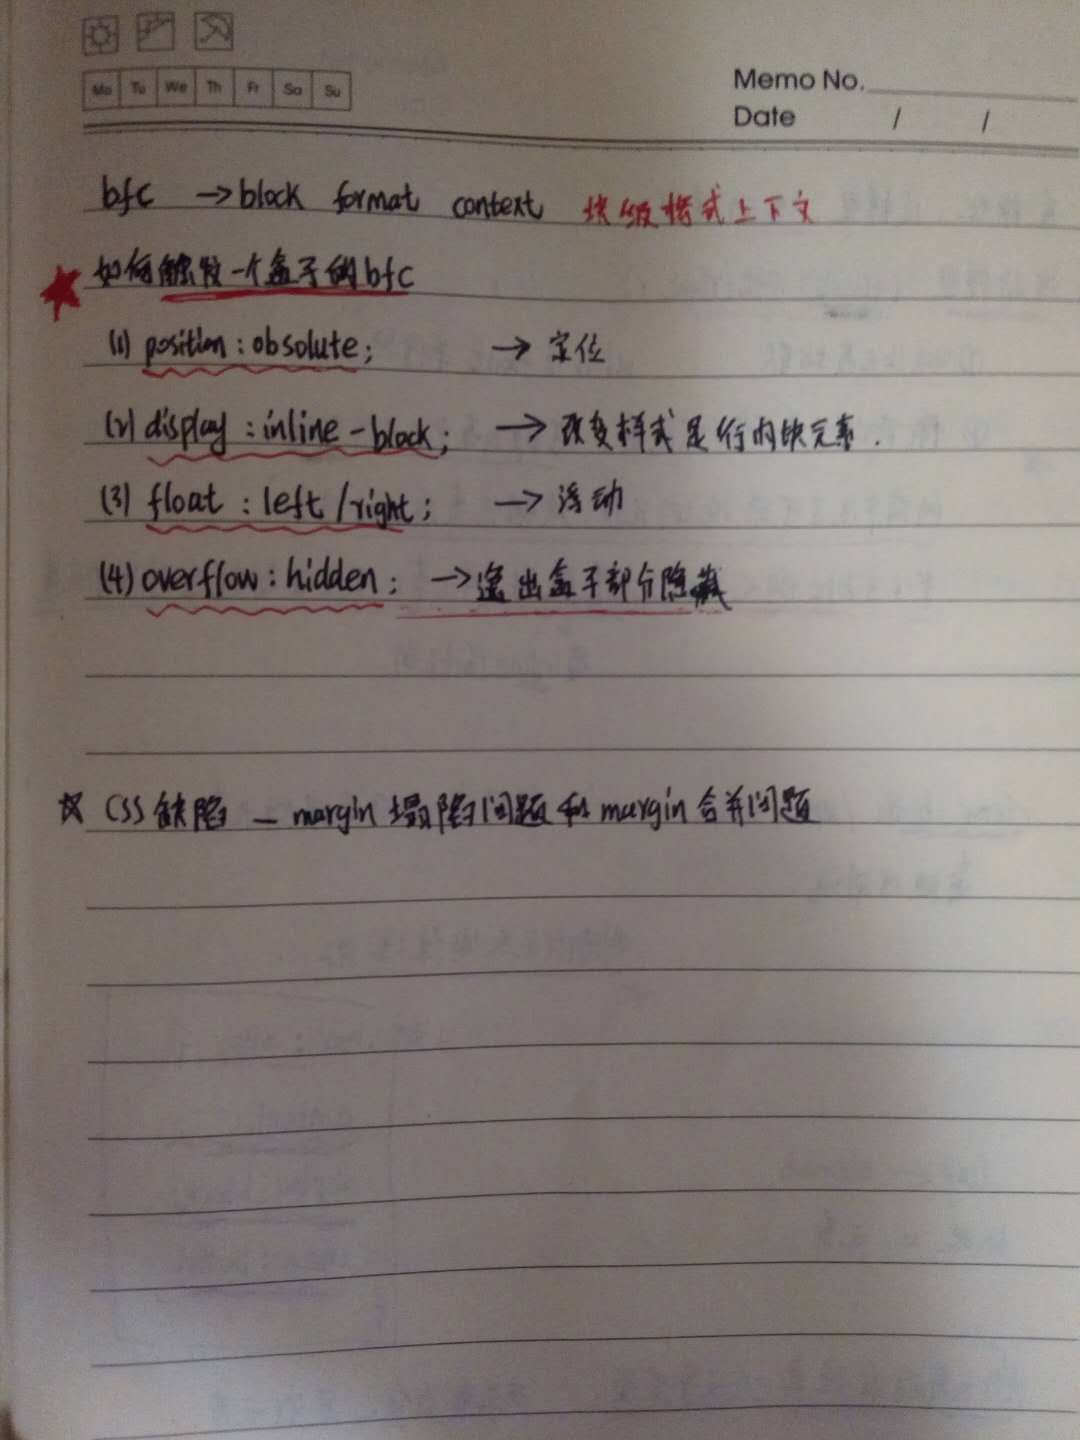 Mo Tu We Th Fr Sa Su
Memo No.
Date / /
bfc →block format context 块级格式上下文
★ 如何触发一个盒子的bfc
(1) position : absolute; → 定位
(2) display : inline-block; → 改变样式是行内块元素.
(3) float : left /right; → 浮动
(4) overflow : hidden; → 溢出盒子部分隐藏
☆ CSS 缺陷 — margin 塌陷问题和 margin 合并问题